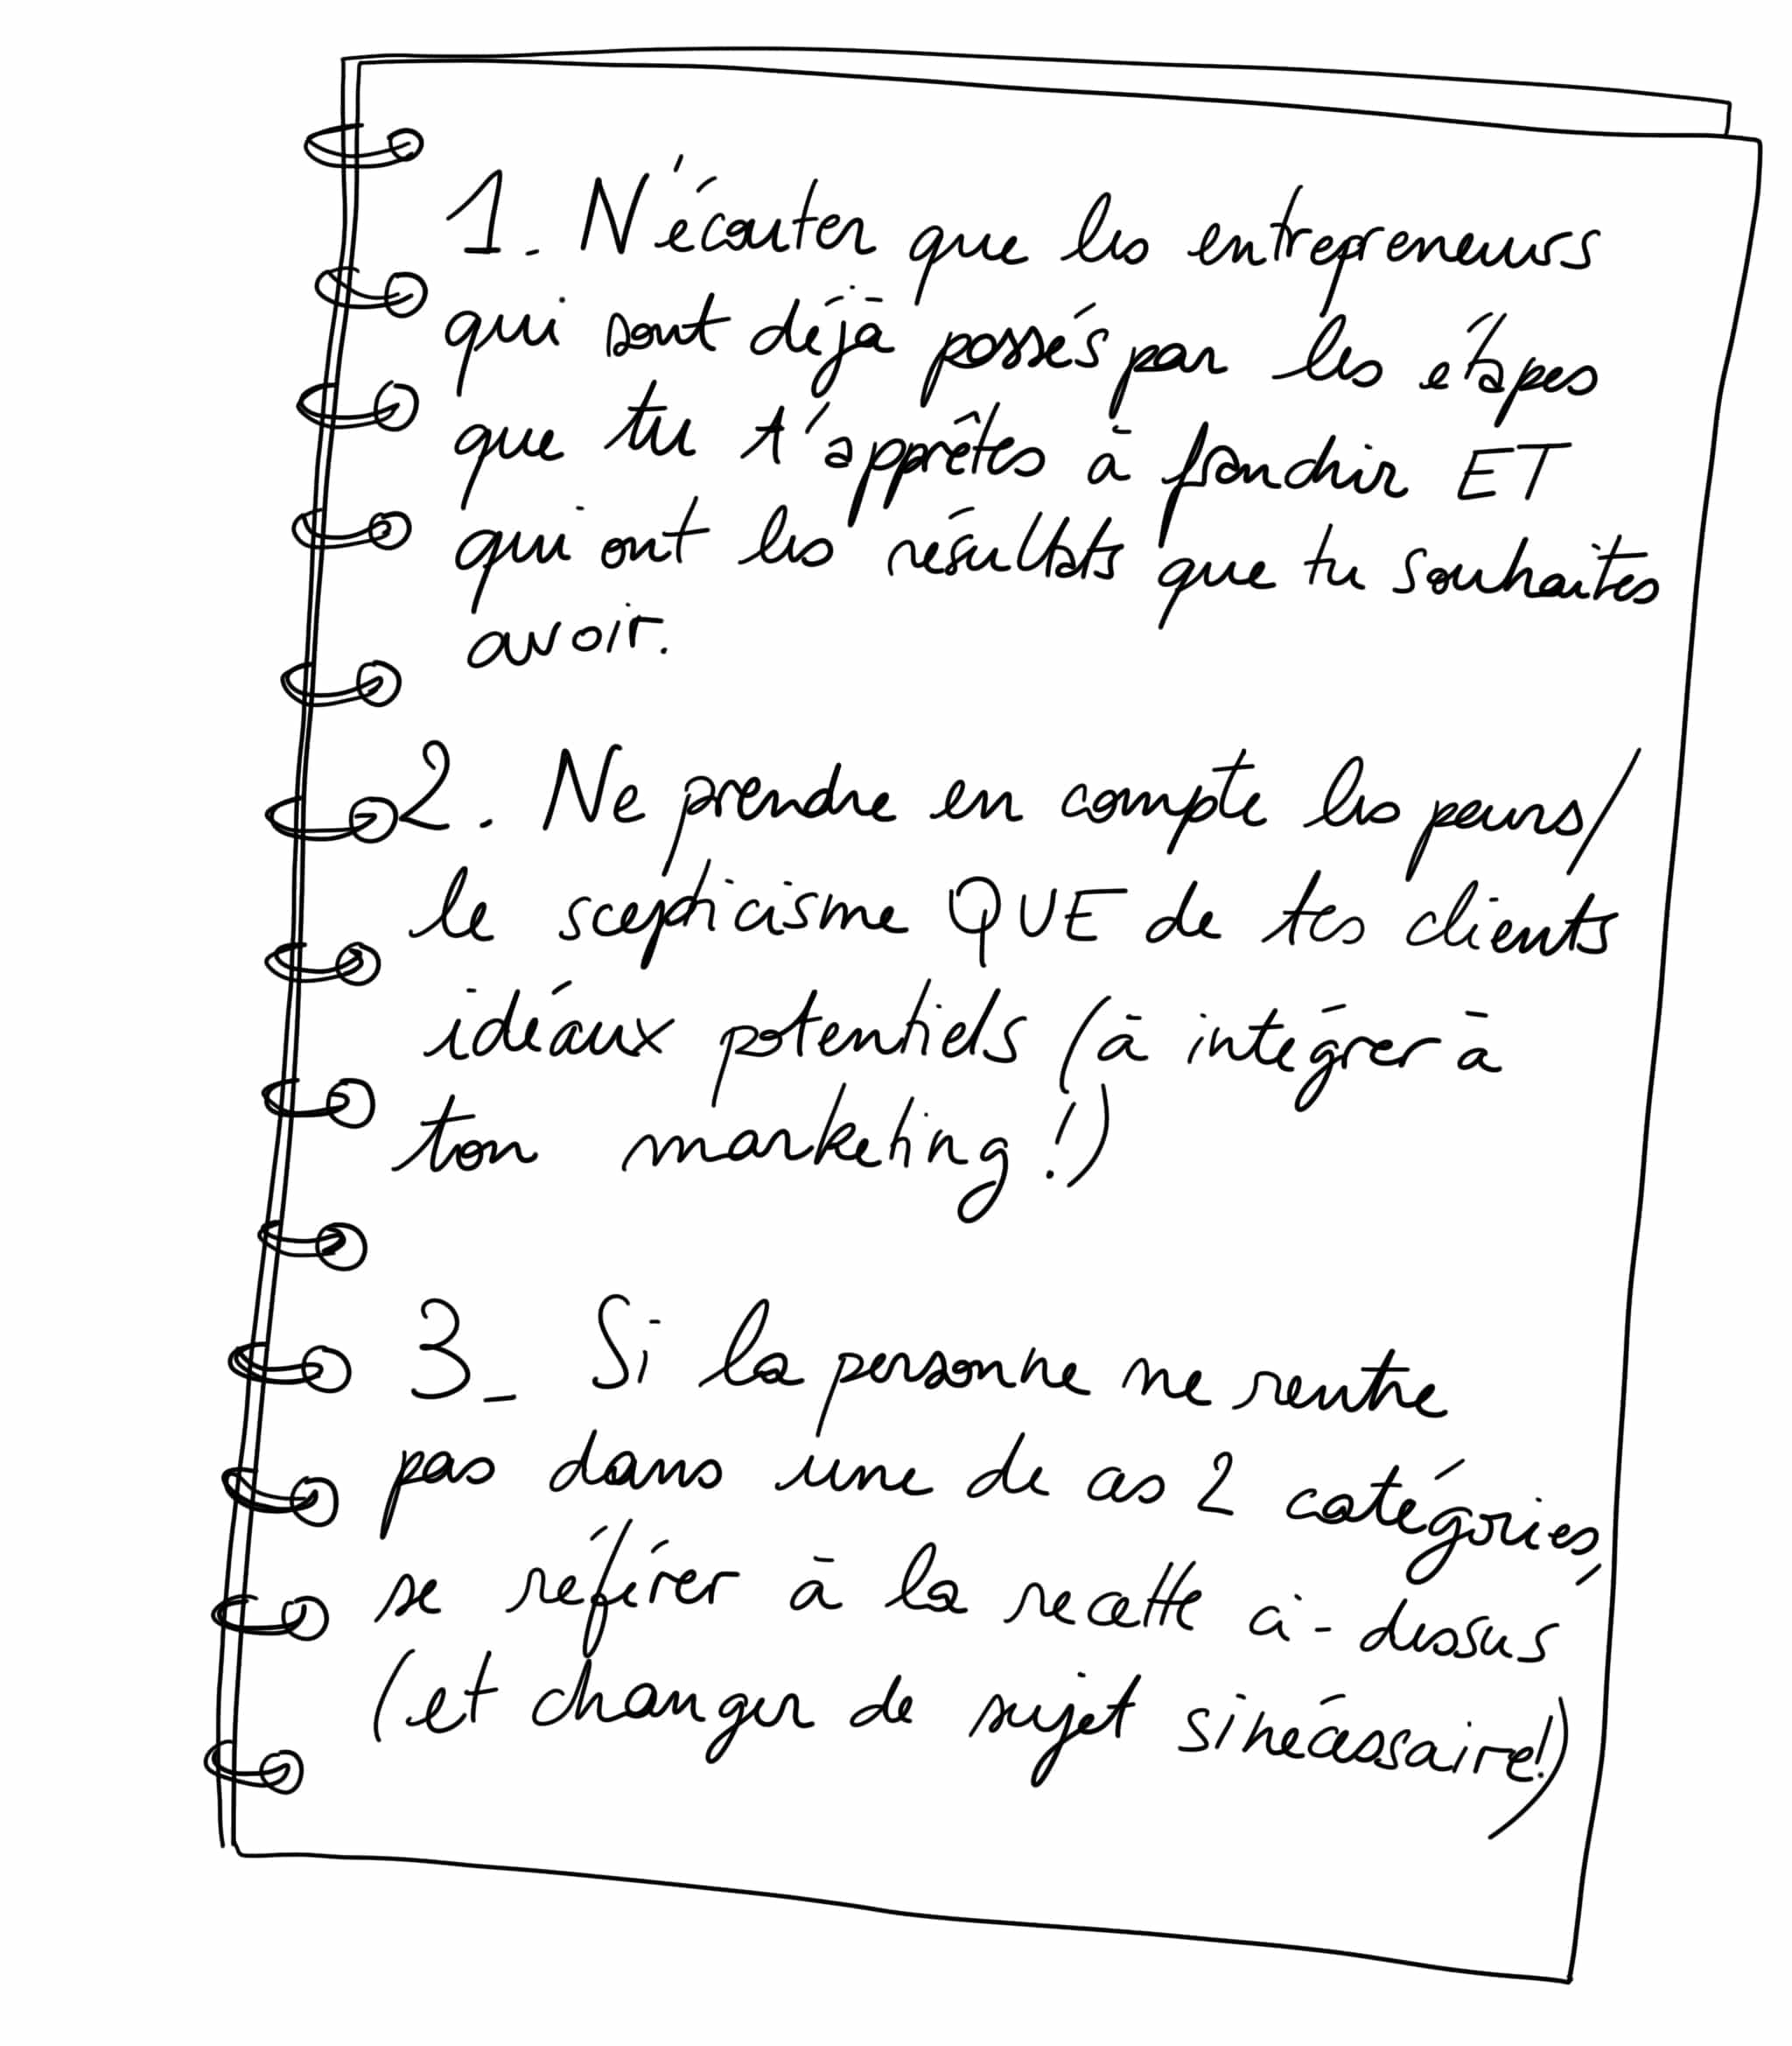 1_ N'écouter que les entrepreneurs
qui sont déjà passés par les étapes
que tu t'apprêtes à franchir ET
qui ont les résultats que tu souhaites
avoir.
2. Ne prendre en compte les peurs/
le scepticisme QUE de tes clients
idéaux potentiels (à intégrer à
ton marketing!)
3_ Si la personne ne rentre
pas dans une de ces 2 catégories,
se référer à la recette ci-dessus
(et changer de sujet si nécessaire!)